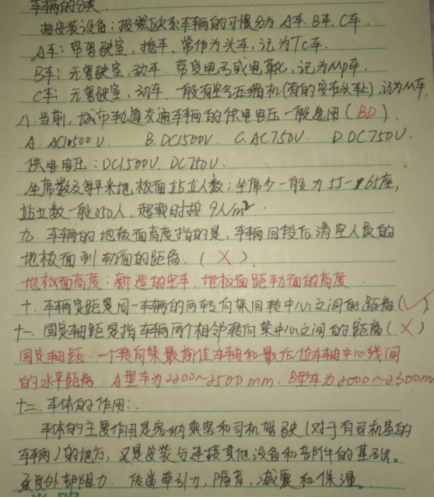 车辆的分类
按安装设备：按照欧系车辆的习惯分为 A车、B车、C车.
A车：带驾驶室，拖车，常作为头车，记为Tc车.
B车：无驾驶室，动车，带受电弓或电靴，记为Mp车.
C车：无驾驶室，动车，一般有空气压缩机(有的安在头车)，记为M车
八、当前，城市轨道交通车辆的供电电压一般是用( BD ).
A. AC1500V. B. DC1500V. C. AC750V. D. DC750V.
供电电压：DC1500V、DC750V.
坐席数及每平米地板面站立人数：坐席 一般为55-65座，
站立数一般250人，超载时按 9人/m².
九、车辆的地板面高度指的是，车辆回段后清空人员的
地板面到轨面的距离. ( × )
地板面高度：新造的空车，地板面距轨面的高度
十、车辆定距是同一车辆的两转向架回转中心之间的距离(√)
十一、固定轴距是指车辆两个相邻转向架中心之间的距离(×)
固定轴距：一个转向架最前位车轴和最后位车轴中心线间
的水平距离 A型车为2200~2500mm、B型车为2000~2300mm
十二、车体的作用：
车体的主要作用是容纳乘客和司机驾驶(对于有司机室的
车辆)的地方，又是安装与连接其他设备和部件的基础。
承受外部阻力、传递牵引力，隔音，减震和保温。